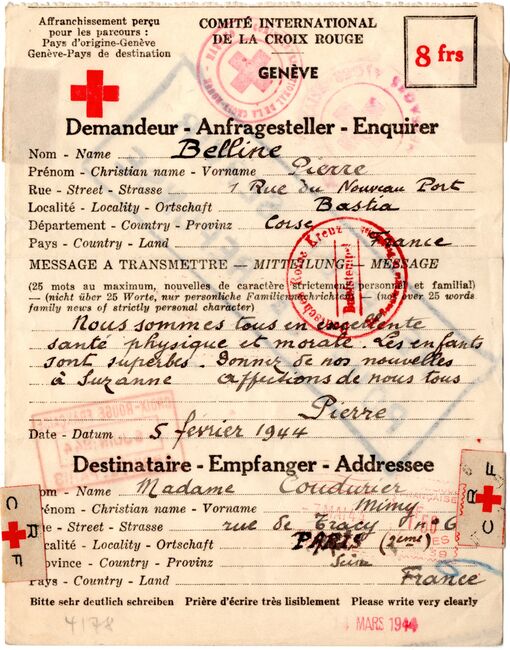 Affranchissement perçu
pour les parcours :
Pays d'origine-Genève
Genève-Pays de destination
COMITÉ INTERNATIONAL
DE LA CROIX ROUGE
GENÈVE
8 frs
Demandeur - Anfragesteller - Enquirer
Nom - Name Belline
Prénom - Christian name - Vorname Pierre
Rue - Street - Strasse 1 Rue du Nouveau Port
Localité - Locality - Ortschaft Bastia
Département - County - Provinz Corse
Pays - Country - Land France
MESSAGE A TRANSMETTRE — MITTEILUNG — MESSAGE
(25 mots au maximum, nouvelles de caractère strictement personnel et familial)
— (nicht über 25 Worte, nur persönliche Familiennachrichten) — (not over 25 words
family news of strictly personal character)
Nous sommes tous en excellente
santé physique et morale Les enfants
sont superbes. Donnez de nos nouvelles
à Suzanne affections de nous tous
Pierre
Date - Datum 5 février 1944
Destinataire - Empfanger - Addressee
Nom - Name Madame Coudurier
Prénom - Christian name - Vorname Mimy
Rue - Street - Strasse rue de Tracy N° 6
Localité - Locality - Ortschaft PARIS (2ème)
Province - County - Provinz Seine
Pays - Country - Land France
Bitte sehr deutlich schreiben Prière d'écrire très lisiblement Please write very clearly
4178
MARS 1944
C R F
C R F
Deutsches Rotes Kreuz
CROIX-ROUGE